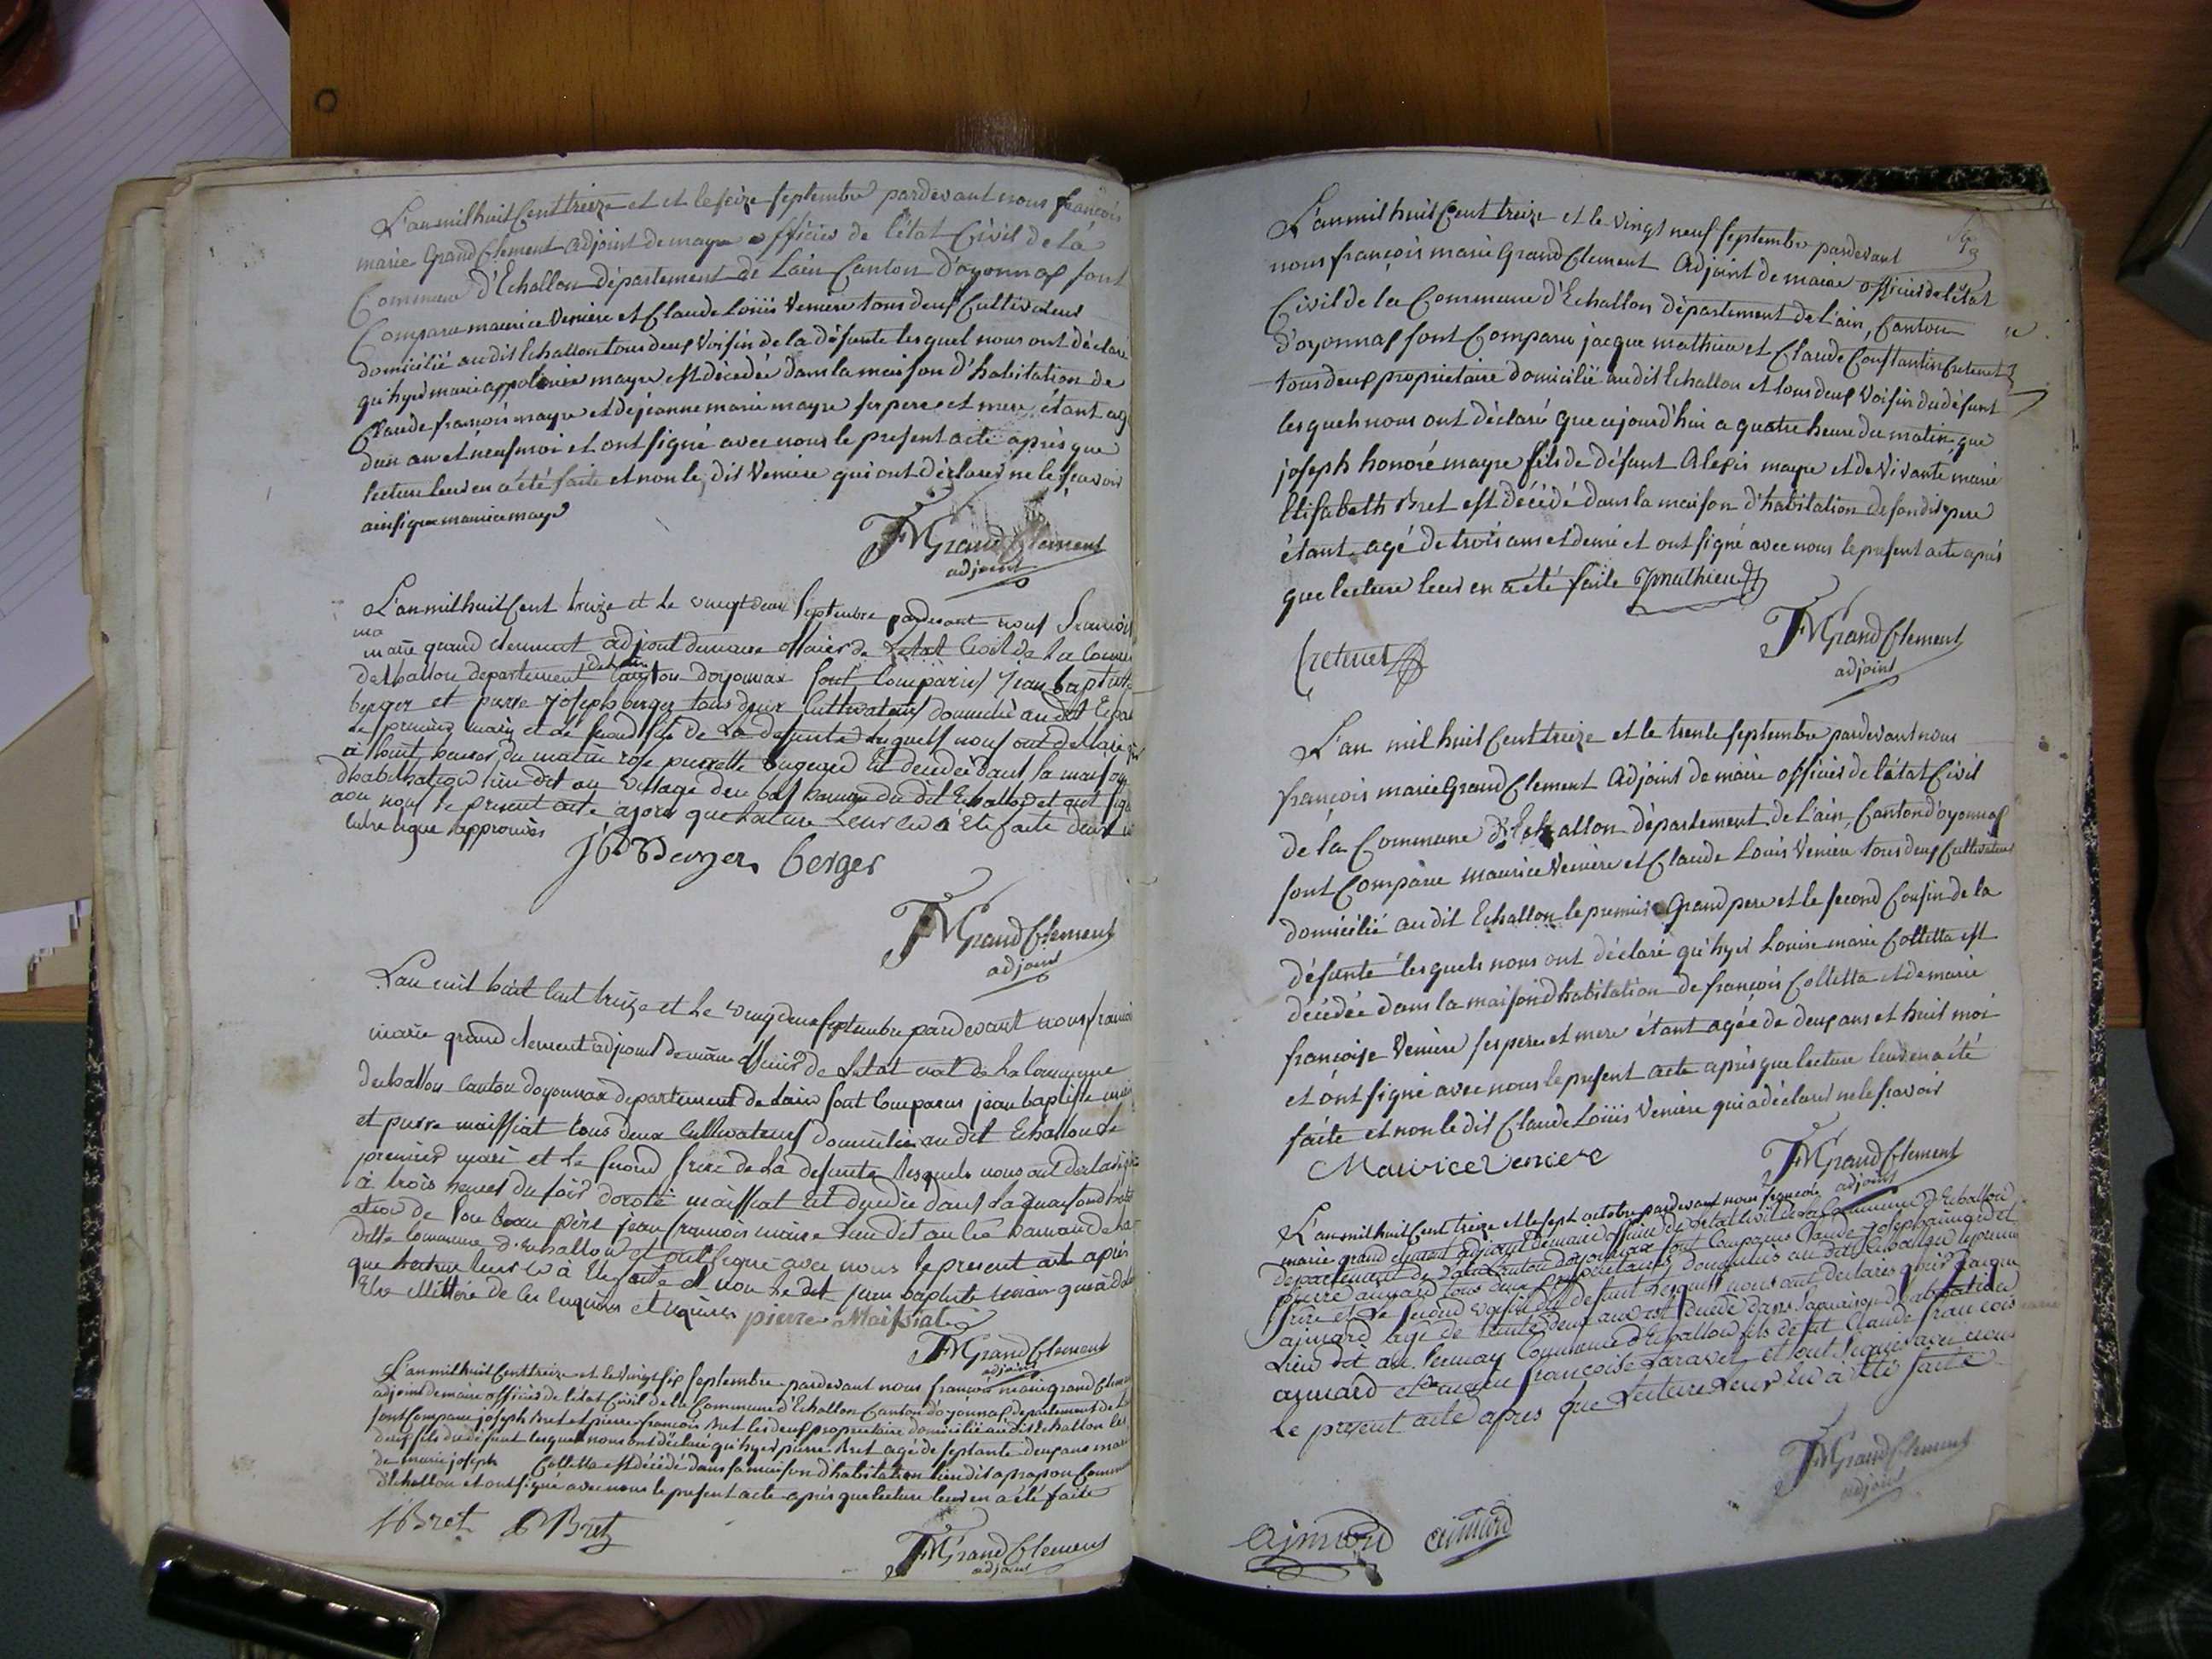 L'an mil huit Cent treize et et le seize septembre pardevant nous françois
marie Grand Clement adjoint de mayre officier de l'état Civil de la
Commune d'Echallon département de Lain Canton D'oyonnas sont
Comparu maurice Veniere et Claude Louis Veniere tous deux Cultivateur
domicilié au dit Echallon tous deux Voisin de la défunte les quel nous ont déclaré
qu'hyer marie appolonie mayre est décedée dans la maison d'habitation de
Claude françois mayre et de jeanne marie mayre ses pere et mere étant ag
d'un an et neuf moi et ont signé avec nous le present acte après que
lecture leur en a été faite et non le dit Veniere qui ont déclarés ne le scavoir
ainsi que maurice mayre
FM Grand Clement
adjoint
L'an mil huit Cent treize et le vingt deux Septembre pardevant nous francois
ma
marie grand clement adjoint de maire officier de Letat Civil de la Comm
dechallon departement de Lain Canton doyonnax sont Comparus jean baptiste
berger et pierre joseph berger tous deux Cultivateurs domicilié au dit Echal
le premier mari et le second fils de La defunte lesquels nous ont declaré
à huit heures du matin rose pierrette Bugnard est decedée dans la maison
dhabitation lieu dit au village deu bas Samian du dit Echallon et ont sig
avec nous le present acte apres que lature Leur en à été faite deux
lutre eque approuvés
JB Berger berger
FM Grand Clement
adjoint
L'an mil huit Cent treize et le vingt deux septembre pardevant nous francois
marie grand clement adjoint de maire officier de Letat civil de La Commune
dechallon Canton doyonnax departement de Lain sont Comparus jean baptiste
et pierre maissiat tous deux Cultivateurs domicilié au dit Echallon le
premier mari et le second frere de La defunte lesquels nous ont declaré
à trois heures du soir doroté maissiat est decedée dans La maison dhabit
ation de son beau père jean francois maire Lieu dit au Cré Samian de la
ditte Commune d'Echallon et ont signé avec nous le present acte après
que lecture leur en à été faite et non le dit jean baptiste
pierre Maissiat
FM Grand Clement
adjoint
L'an mil huit Cent treize et le vingt six septembre pardevant nous françois marie grand Clement
adjoint de maire officier de l'état Civil de la Commune d'Echallon Canton d'oyonnas departement de L
sont Comparu joseph Bret et pierre françois Bret les deux proprietaire domicilié au dit Echallon les
deux fils du défunt lesquel nous ont déclaré qu'hyer pierre Bret agé de septante deux ans mari
de marie joseph Colletta est décédé dans sa maison d'habitation lieu dit aprapon Commune
d'Echallon et ont signé avec nous le present acte après que lecture leur en a été faite
J Bret P Bret
FM Grand Clement
adjoint
L'an mil huit Cent treize et le vingt neuf septembre pardevant
nous françois marie Grand Clement Adjoint de maire officier de l'état
Civil de la Commune d'Echallon département de l'ain, Canton
d'oyonnas sont Comparu jacque mathieu et Claude Constantin Cretenet
tous deux proprietaire domicilié au dit Echallon et tous deux Voisin du défunt
les quels nous ont déclaré que cejourd'hui a quatre heure du matin, que
joseph honoré mayre fils de défunt Alexis mayre et de Vivante marie
Elisabeth Bret est décédé dans la maison d'habitation de son dit pere
étant agé de trois ans et demi et ont signé avec nous le present acte après
que lecture leur en a été faite J mathieu
Cretenet
FM Grand Clement
adjoint
L'an mil huit Cent treize et le trente septembre pardevant nous
françois marie Grand Clement Adjoint de maire officier de l'état Civil
de la Commune d'Echallon département de l'ain, Canton d'oyonnas
sont Comparu maurice Veniere et Claude Louis Veniere tous deux Cultivateurs
domicilié au dit Echallon le premier Grand pere et le second Cousin de la
défunte lesquels nous ont déclaré qu'hyer Louise marie Colletta est
décédée dans la maison d'habitation de françois Colletta et de marie
françoise Veniere ses pere et mere étant agée de deux ans et huit moi
et ont signé avec nous le present acte après que lecture leur en a été
faite et non le dit Claude Louis Veniere qui a déclaré ne le scavoir
Maurice Veniere
FM Grand Clement
adjoint
L'an mil huit Cent treize et le sept octobre pardevant nous francois
marie grand clement adjoint de maire officier de Letat Civil de La Commune d'Echallon
departement de Lain Canton doyonnax sont Comparus Claude joseph aimard et
pierre aimard tous deux proprietaires domiciliés au dit Echallon le premier
frere et le second voisin du defunt lesquels nous ont declarés qu'hier jacque
ajmard agé de trente deux ans est decedé dans sa maison d'habitation
Lieu dit au Cernay Commune d'Echallon fils de fut Claude francois
aymard et de francoise Paraven et sont Signés avec nous
le present acte apres que Lecture Leur en à été faite
FM Grand Clement
adjoint
ajmard aimard